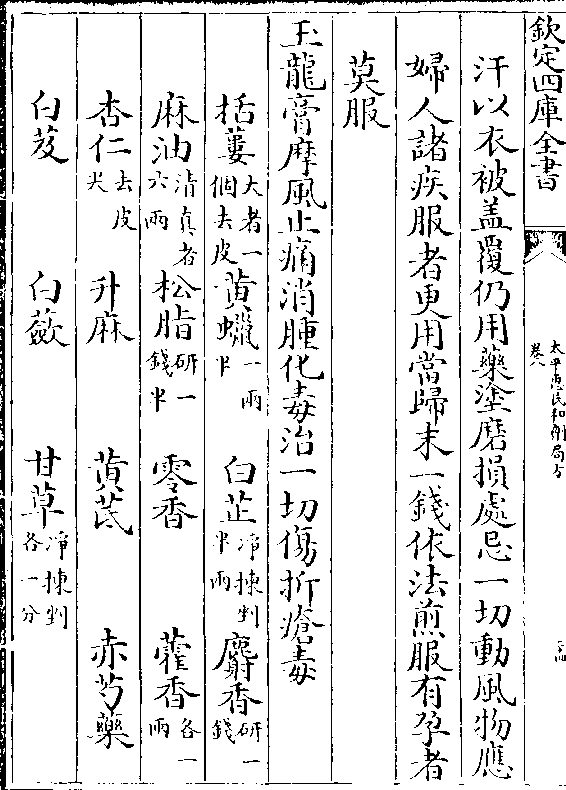 欽定四庫全書
太平惠民和劑局方
卷八
汗以衣被盖覆仍用藥塗磨損處忌一切動風物應
婦人諸疾服者更用當歸末一錢依法煎服有孕者
莫服
玉龍膏摩風止痛消腫化毒治一切傷折瘡毒
括蔞大者一個去皮 黄蠟一兩半 白芷淨揀剉半兩 麝香研一錢
麻油清真者六兩 松脂研一錢半 零香 藿香各一兩
杏仁去皮尖 升麻 黄芪 赤芍藥
白芨 白蘞 甘草淨揀剉各一分